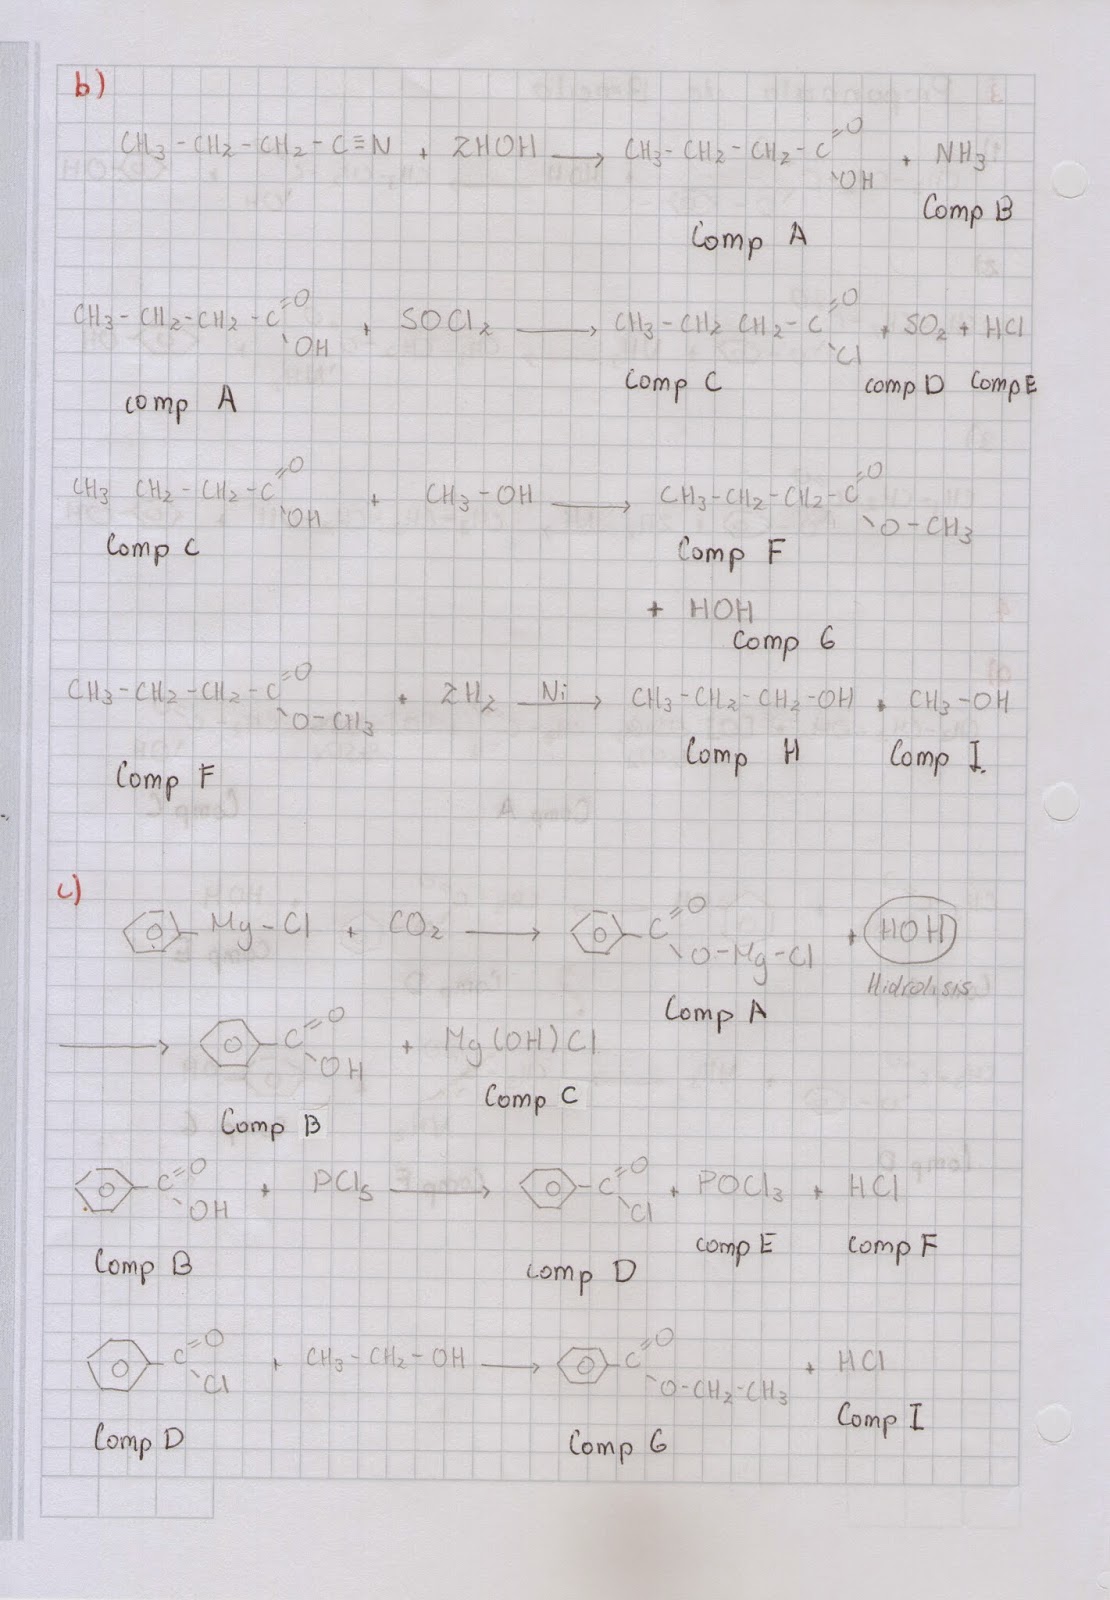 b)
CH3-CH2-CH2-C≡N + 2HOH → CH3-CH2-CH2-C=O -OH + NH3
Comp B
Comp A
CH3-CH2-CH2-C=O -OH + SOCl2 → CH3-CH2 CH2-C=O -Cl + SO2 + HCl
comp A Comp C comp D Comp E
CH3 CH2-CH2-C=O -OH + CH3-OH → CH3-CH2-CH2-C=O -O-CH3
Comp C Comp F
+ HOH
Comp G
CH3-CH2-CH2-C=O -O-CH3 + 2H2 Ni → CH3-CH2-CH2-OH + CH3-OH
Comp F Comp H Comp I.
c)
-Mg-Cl + CO2 → -C=O -O-Mg-Cl + HOH
Hidrolisis
Comp A
→ -C=O -OH + Mg(OH)Cl
Comp B Comp C
-C=O -OH + PCl5 → -C=O -Cl + POCl3 + HCl
Comp B Comp D comp E comp F
-C=O -Cl + CH3-CH2-OH → -C=O -O-CH2-CH3 + HCl
Comp D Comp G Comp I